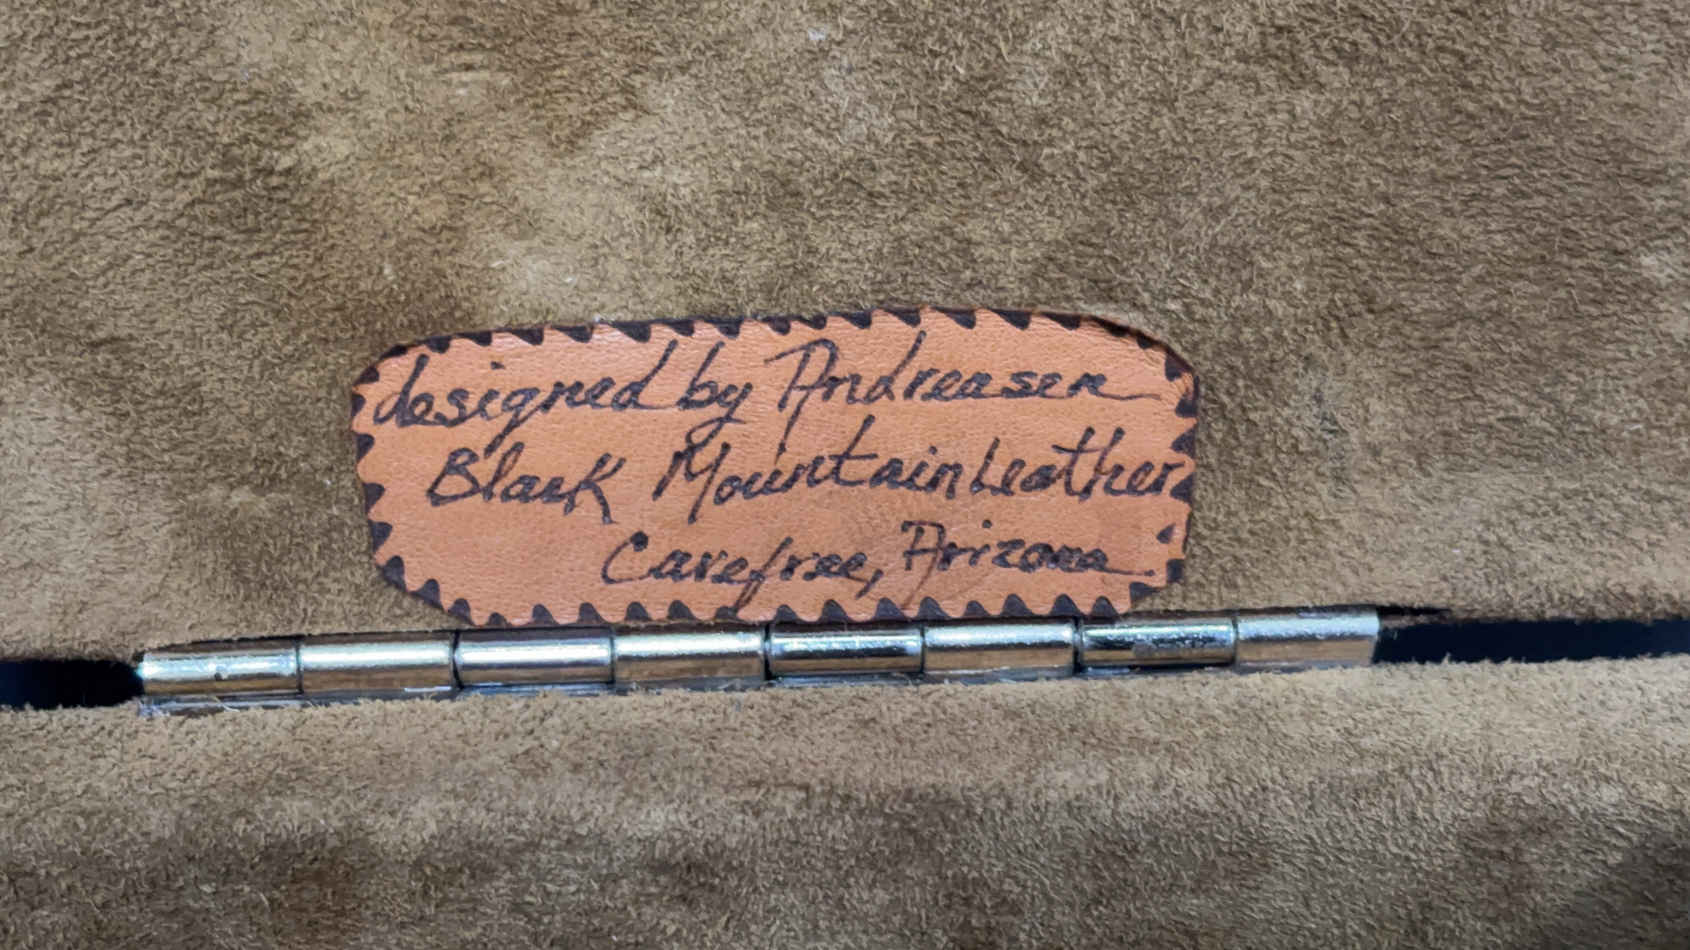 designed by Andreasen
Black Mountain Leather
Carefree, Arizona